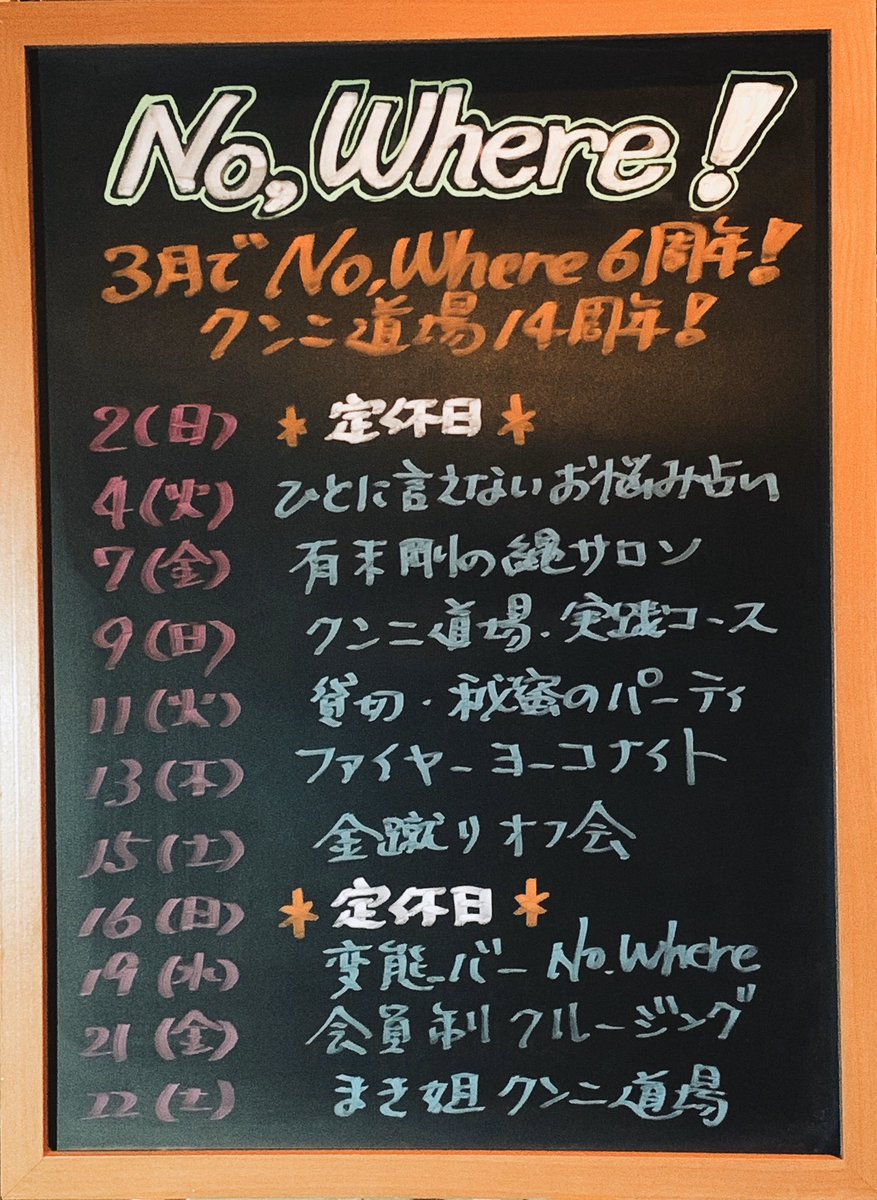 No, Where!
3月で No, Where 6周年!
クンニ道場14周年!
2(日) *定休日*
4(火) ひとに言えないお悩み占い
7(金) 有末剛の縄サロン
9(日) クンニ道場・実践コース
11(火) 貸切・秘蜜のパーティ
13(木) ファイヤーヨーコナイト
15(土) 金蹴りオフ会
16(日) *定休日*
19(水) 変態バー No.Where
21(金) 会員制クルージング
22(土) まき姐クンニ道場